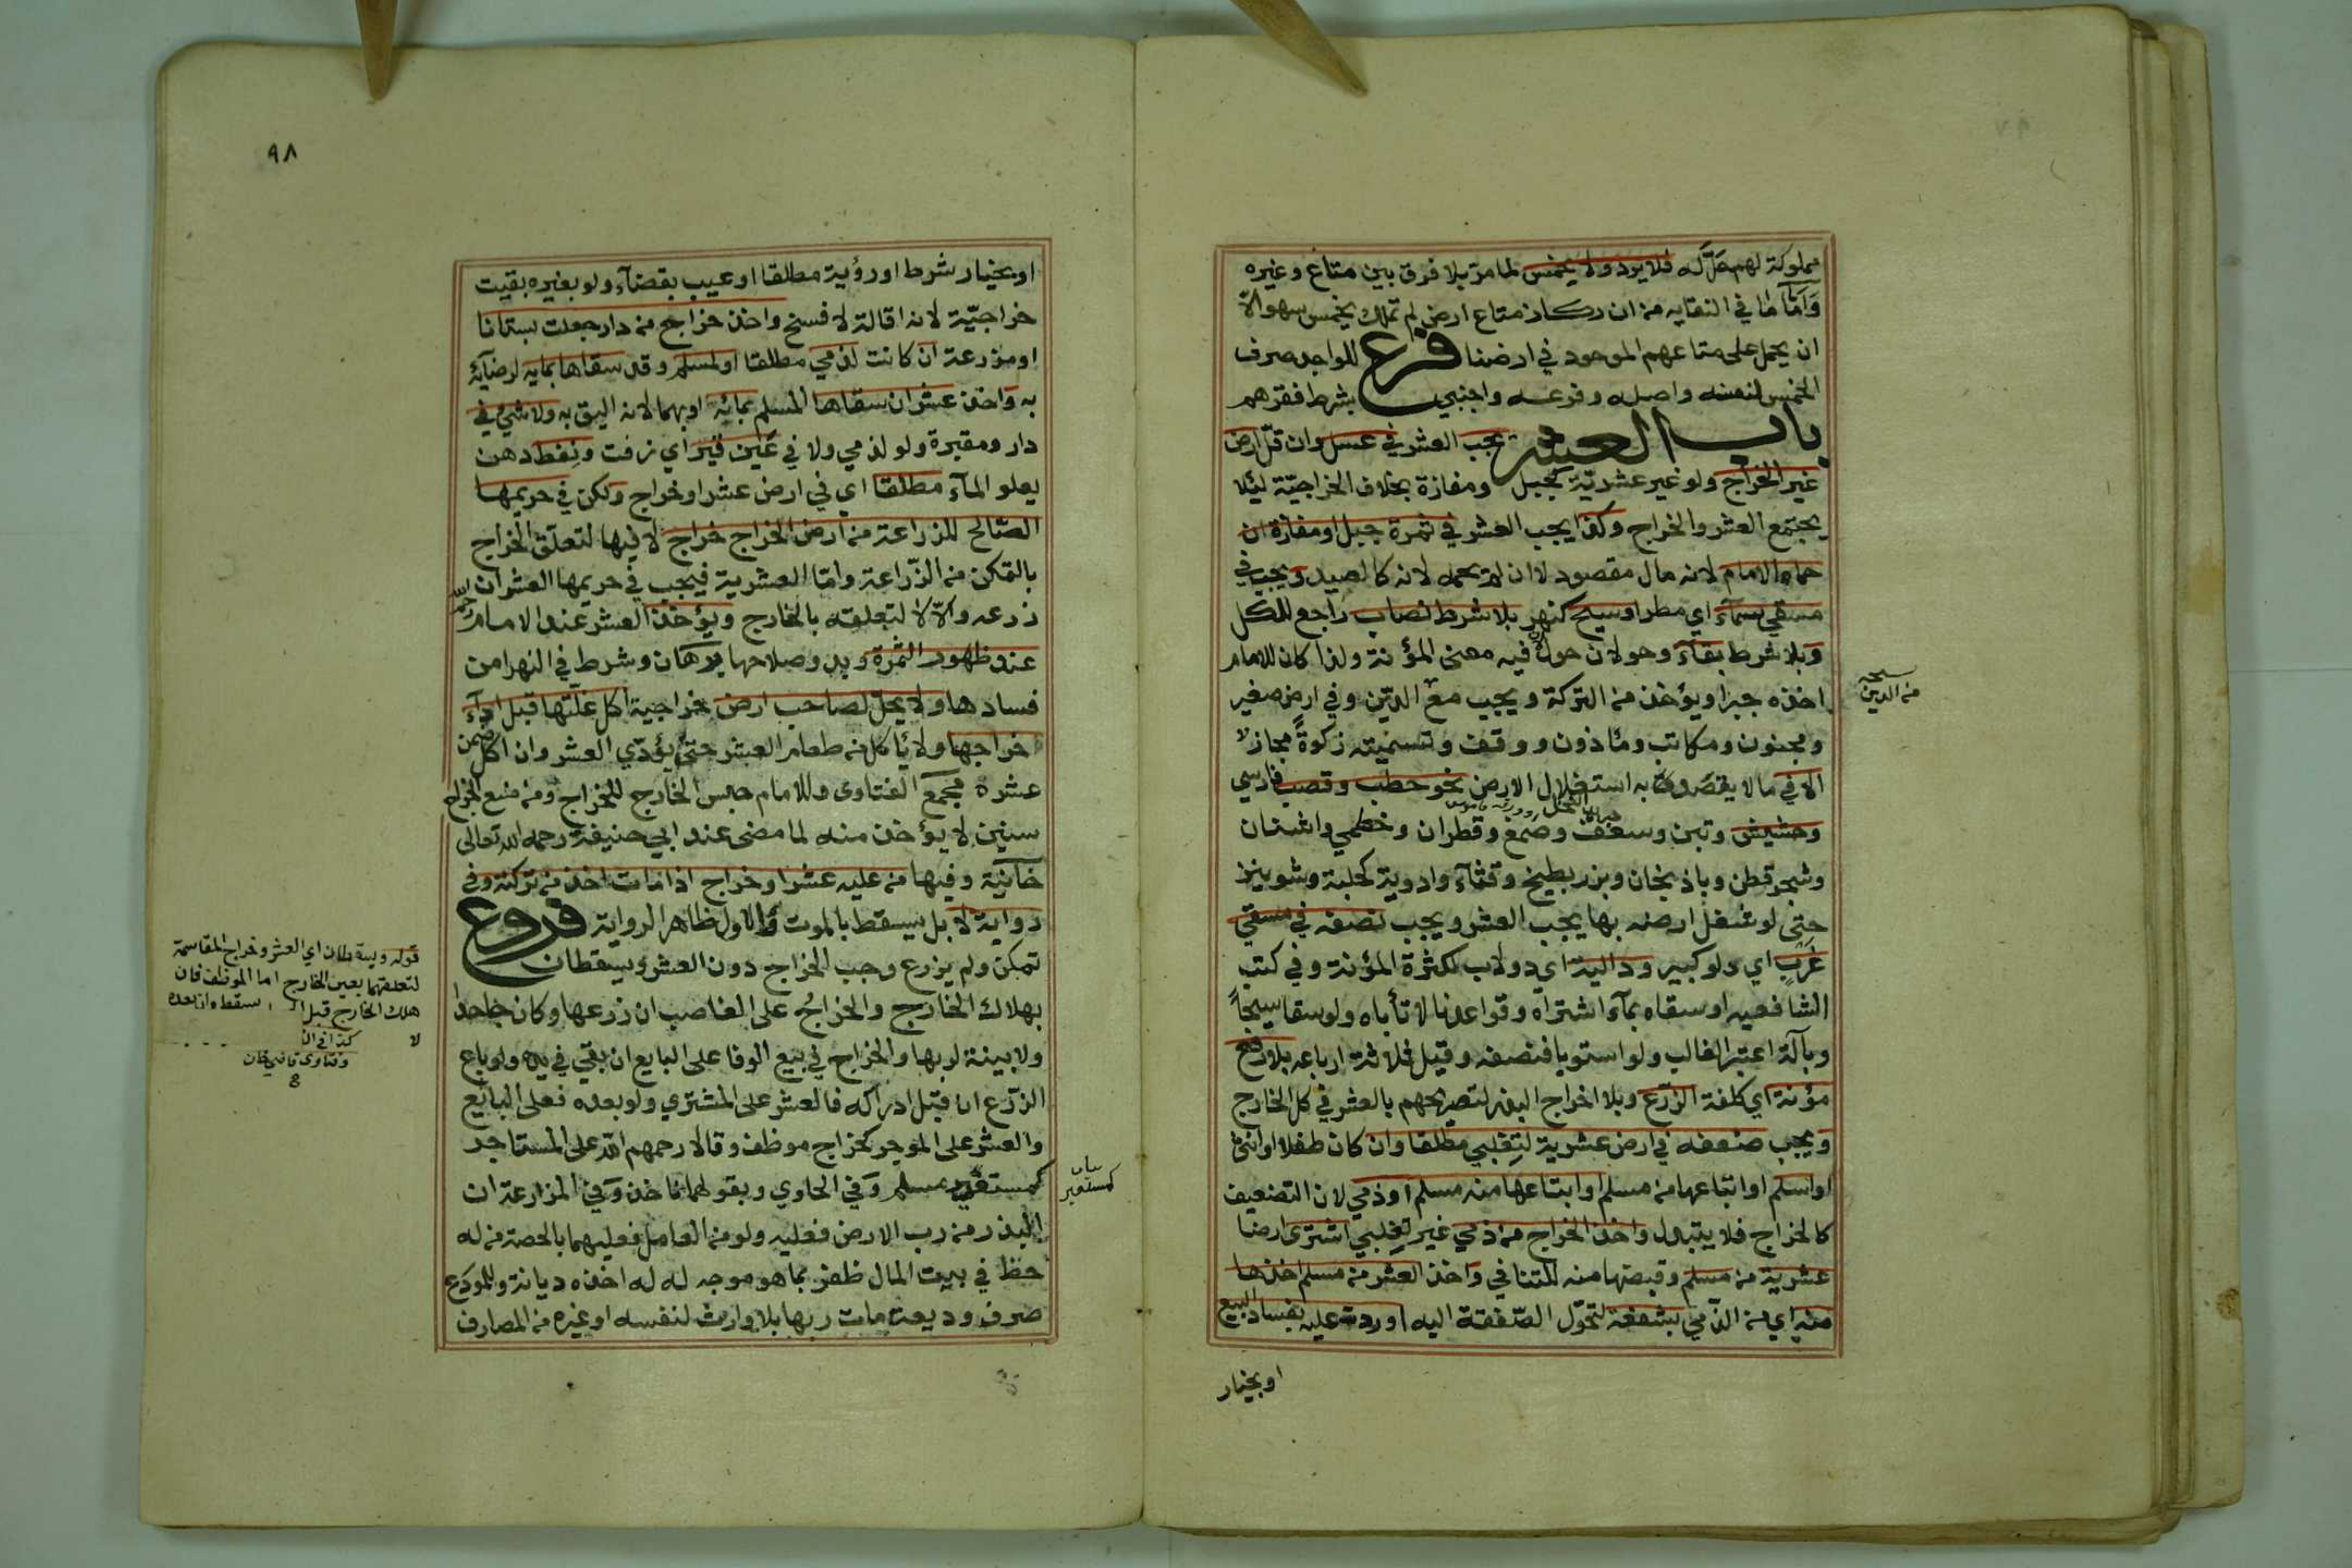 مملوكة لهم حل له فلا يرد ولا يخمس لما مر بلا فرق بين متاع وغيره
وأما ما في النقايه من ان ركاز متاع ارض لم تملك يخمس سهو الا
ان يحمل على متاعهم الموجود في ارضنا فرع للواجد صرف
الخمس لنفسه واصله وفرعه واجنبي بشرط فقرهم
باب العشر يجب العشر في عسل وان قل ارض
غير الخراج ولو غير عشرية كجبل ومفازة بخلاف الخراجية ليئلا
يجتمع العشر والخراج وكذا يجب العشر في ثمرة جبل او مفازة ان
حماه الامام لانه مال مقصود لا ان لم يحمه لانه كالصيد ويجب في
مسقي سماء اي مطر او سيح كنهر بلا شرط نصاب راجع للكل
وبلا شرط بقاء وحولان حول لان فيه معنى المؤنة ولذا كان للامام
اخذه جبرا ويؤخذ من التركة ويجب مع الدين وفي ارض صغير
ومجنون ومكاتب ومأذون ووقف وتسميته زكوة مجاز لا
الا في ما لا يقصد به استغلال الارض نحو حطب وقصب فارسي
وحشيش وتبن وسعف وصمغ وقطران وخطمي واشنان
وشجر قطن وباذنجان وبزر بطيخ وقثاء وادوية كحلبة وشونيز
حتى لو شغل ارضه بها يجب العشر ويجب نصفه في مسقي
غرب اي دلو كبير ودالية اي دولاب لكثرة المؤنة وفي كتب
الشافعيه او سقاه بماء اشتراه وقواعدنا لا تأباه ولو سقا سيحاً
وبآلة اعتبر الغالب ولو استويا فنصفه وقيل ثلاثة ارباعه بلا رفع
مؤنة اي كلفة الزرع وبلا اخراج البذر لتصريحهم بالعشر في كل الخارج
ويجب ضعفه في ارض عشرية لتغلبي مطلقا وان كان طفلا او انثى
او اسلم او ابتاعها من مسلم او ابتاعها منه مسلم او ذمي لان التضعيف
كالخراج فلا يتبدل واخذ الخراج من ذمي غير تغلبي اشترى ارضا
عشرية من مسلم وقبضها منه للتنافي واخذ العشر من مسلم اخذها
منه اي من الذمي بشفعة لتحول الصفقة اليه او ردت عليه بفساد البيع
او بخيار
من الدين
٩٨
او بخيار شرط او رؤية مطلقا او عيب بقضاء ولو بغيره بقيت
خراجية لانه اقالة لا فسخ واخذ خراج من دار جعلت بستانا
او مزرعة ان كانت لذمي مطلقا او لمسلم وقد سقاها بمايه لرضائه
به واخذ عشر ان سقاها المسلم بمائه او بهما لانه اليق به ولا شيء في
دار ومقبرة ولو لذمي ولا في عين قير اي زفت ونفط دهن
يعلو الماء مطلقا اي في ارض عشر او خراج ولكن في حريمها
الصالح للزراعة من ارض الخراج خراج لا فيها لتعلق الخراج
بالتمكن من الزراعة واما العشرية فيجب في حريمها العشر ان
زرعه والا لا لتعلقه بالخارج ويؤخذ العشر عند الامام رحمه الله
عند ظهور الثمرة وبدو صلاحها برهان وشرط في النهر امن
فسادها ولا يحل لصاحب ارض خراجية اكل غلتها قبل اداء
خراجها ولا يأكل من طعام العشر حتى يؤدي العشر وان اكل ضمن
عشره مجمع الفتاوى وللامام حبس الخارج للخراج ومن منع الخراج
سنين لا يؤخذ منه لما مضى عند ابي حنيفة رحمه الله تعالى
خانية وفيها من عليه عشر او خراج اذا مات اخذ من تركته وفي
رواية لا بل يسقط بالموت والاول ظاهر الرواية فروع
تمكن ولم يزرع وجب الخراج دون العشر ويسقطان
بهلاك الخارج والخراج على الغاصب ان زرعها وكان جاحدا
ولا بينة لربها والخراج في بيع الوفا على البايع ان بقي في يده ولو باع
الزرع ان قبل ادراكه فالعشر على المشتري ولو بعده فعلى البائع
والعشر على الموجر كخراج موظف وقالا رحمهم الله على المستاجر
كمستعير مسلم وفي الحاوي وبقولهما نأخذ وفي المزارعة ان
البذر من رب الارض فعليه ولو من العامل فعليهما بالحصة من له
حظ في بيت المال ظفر بما هو موجه له له اخذه ديانة وللمودع
صرف وديعة مات ربها بلا وارث لنفسه او غيره من المصارف
قوله ويسقطان اي العشر وخراج المقاسمة
لتعلقهما بعين الخارج اما الموظف فان
هلك الخارج قبل سقط وان بعده
لا كذا في
وفتاوى قاضي خان
كمستعير